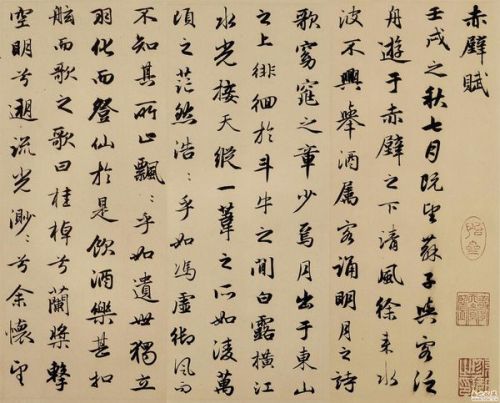 赤壁賦
壬戌之秋七月既望蘇子與客泛
舟遊于赤壁之下清風徐来水
波不興舉酒属客誦明月之詩
歌窈窕之章少焉月出于東山
之上徘徊於斗牛之間白露横江
水光接天縱一葦之所如淩萬
頃之茫然浩:乎如馮虚御風而
不知其所止飄:乎如遺世獨立
羽化而登仙於是飲酒樂甚扣
舷而歌之歌曰桂棹兮蘭槳擊
空明兮遡流光渺:兮余懷望